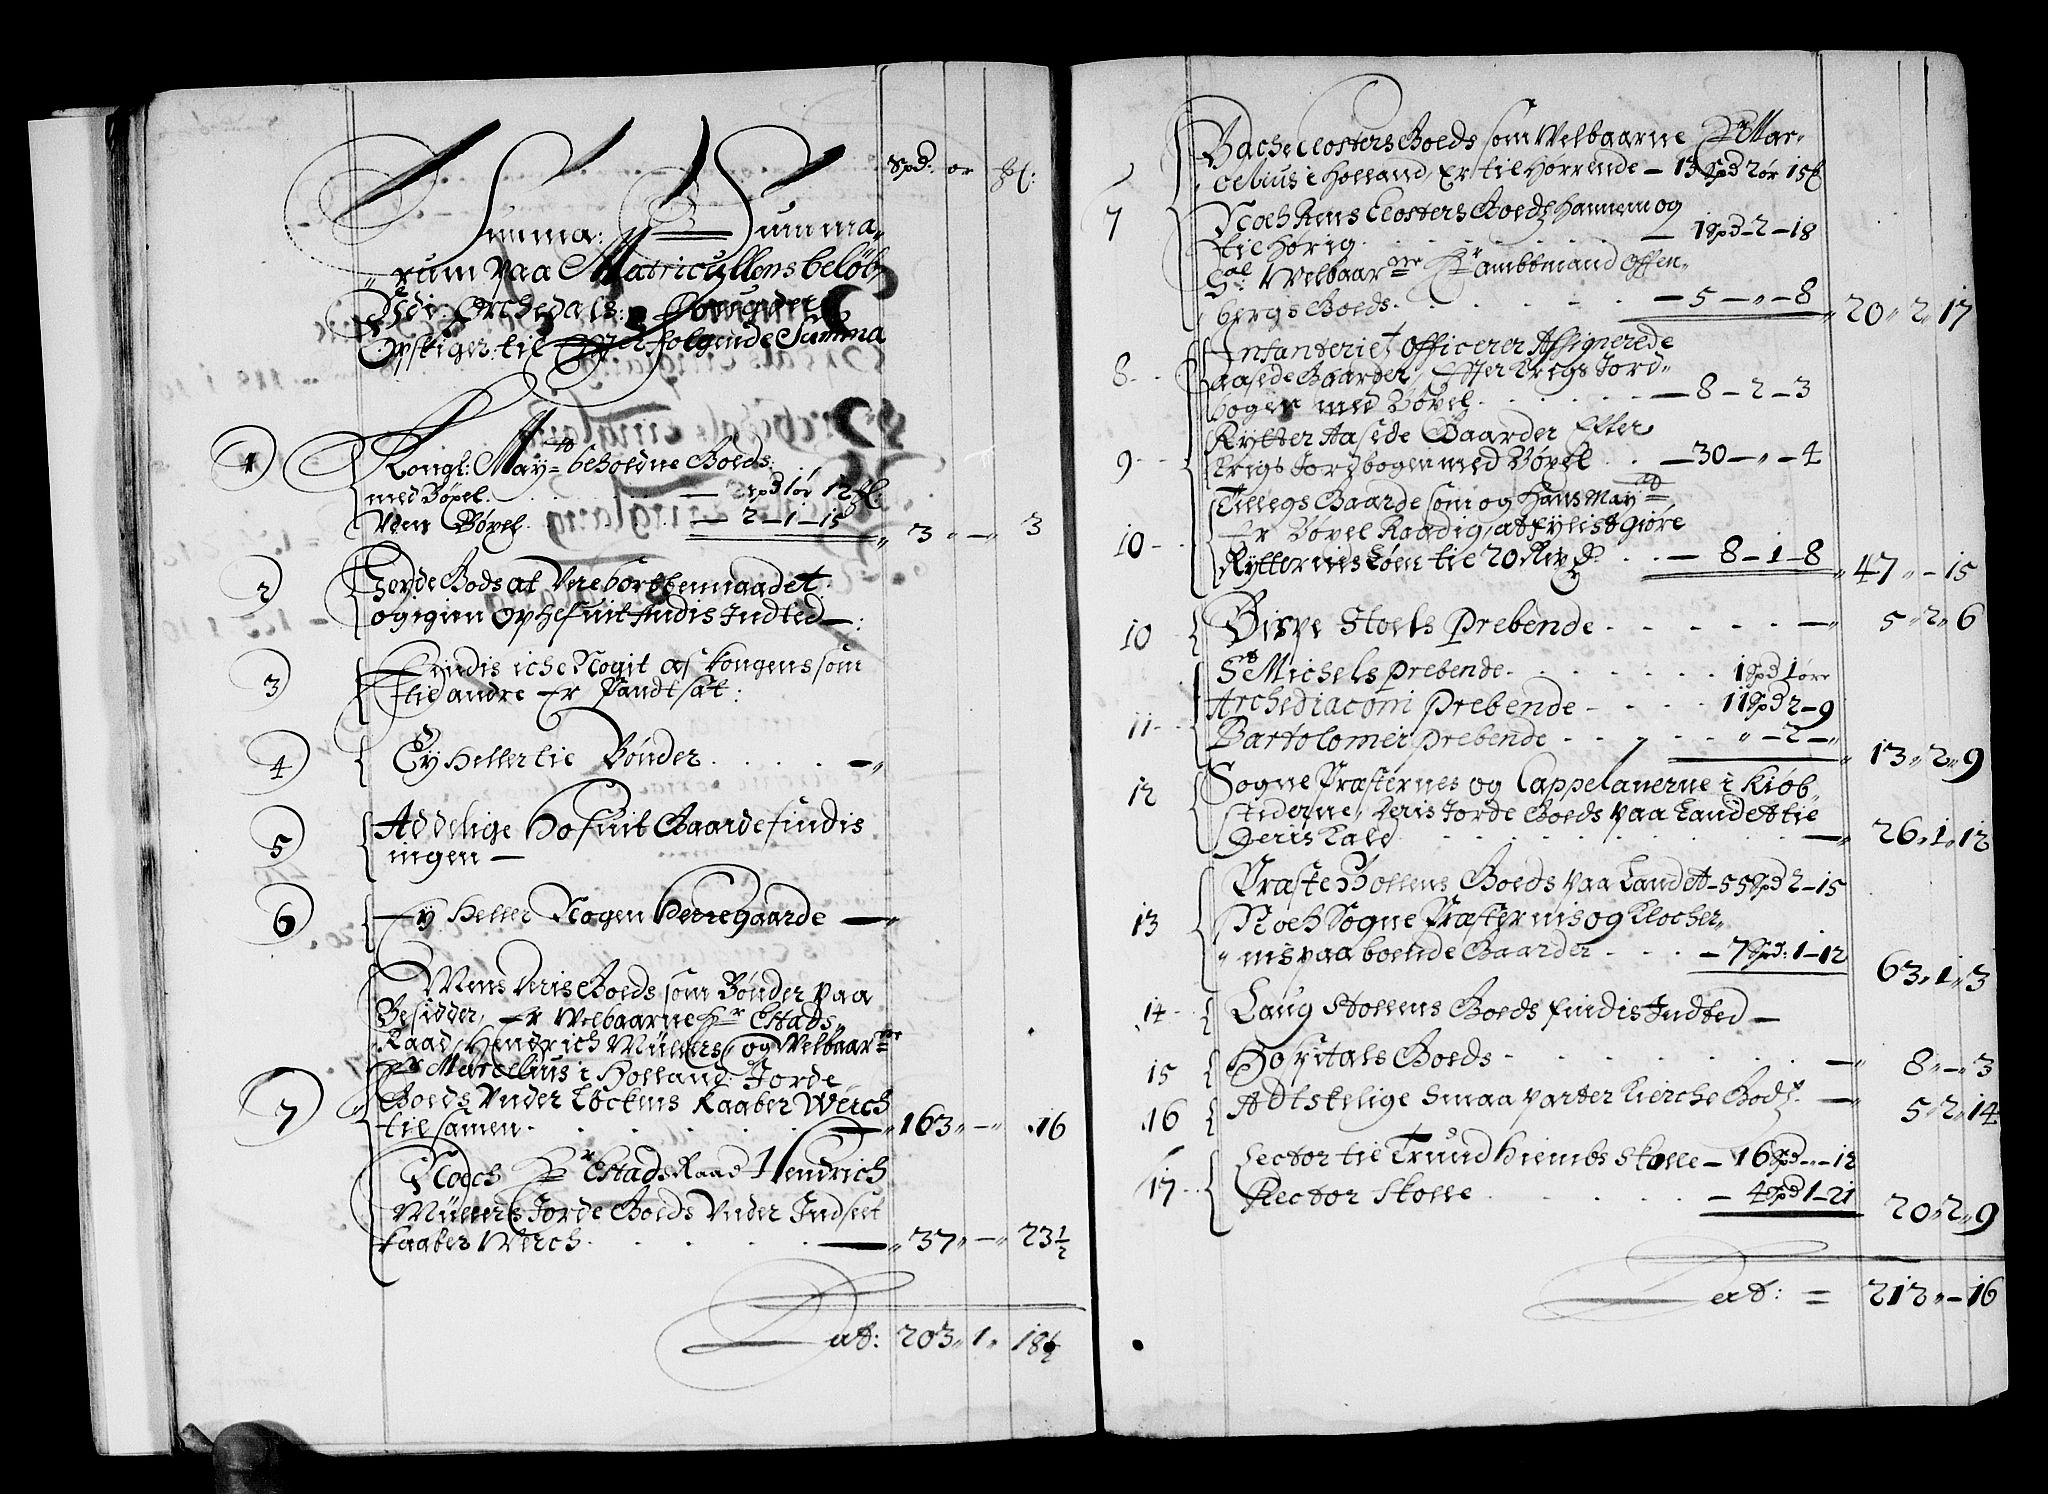 Spd: or ʒl:
Summa: Summa-
rum paa Matricullens beløb
udi Orchedals: Fougderi
Opstiger til Efterfølgende Summa
1 Kongl: Mayts beholdne Goeds
med Böxel. . . — 2 spd 1 ør 12 ʒl:
Uden Böxel. . — 2 – 1 – 15 3 „ – „ 3
2
ogigien Indted —:
3 Findis iche Nogit af Kongens som
til andre Er Pandtsat:
4 Ey Heller til Bönder . . . . —„
5 Addelige Hofuit Gaarde findis
ingen —
6 Ey Heller Nogen Herregaarde —„
Mens deris Goeds som Bönder paa
Besidder, Er Welbaarne Hr Etads
Raad Hendrich Müllers, og Welbaarne
Hr Marcellius i Holland: Jorde
7 Goeds Under Løckens Kaaber Werch
tilsamen . . . . — 163 „ – „ 16
Noch Hr Etads Raad Hendrich
Müllers Jorde Goeds Under Indset
Kaaber Werch . . . . — 37 „ – „ 23½
Lat: 203 „ 1 „ 18½
Bache Closters Goeds som Welbaarne Hr Mar-
celius i Holland, Er tilhørrende – 13 Spd 2 ør 15 ʒl
7 Noch Rens Closters Goeds hannem og
tilhørig . . . . — 1 Spd – 2 – 18
Sal Welbaarne Hr Ambtmand Offen-
bergs Goeds . . . . — 5 – „ – 8 20 „ 2 „ 17
8 Infanteriet Officerer Assignerede
aasede Gaarder, Efter Krigs Jord-
bogen med Böxel . . . — 8 – 2 – 3
9 Rytter Aasede Gaarder Efter
Krigs Jordbogen med Böxel . . — 30 – „ – 4
Tillegs Gaarde som og Hans Mayts
10 Er Böxel Raadig, at fylistgiøre
Rytternis Løen til 20 Rixd . . — 8 – 1 – 8 47 „ – 15
10 Bispe Stoels Prebende . . . . — „ 5 „ 2 „ 6
St Michels Prebende . . . . 1 Spd 1 øre
11 Archediaconi Prebende – . . . 11 Spd 2 – 9
Bartolomei Prebende . . . . „ – 2 – „ 13 „ 2 „ 9
12 Sogne Præsternes og Cappelanerne i Kiøb-
stederne, deris Jorde Goeds paa Landet til
deris Kald . . . . — „ 26 „ 1 „ 12
Præste Bollens Goeds paa Landet – 55 Spd 2 – 15
13 Noch Sogne Præsternis og Klocher-
nis paa boende Gaarder . . . – 7 Spd: 1 – 12 63 „ 1 „ 3
14 Laug Stollens Goeds findis Indted —
15 Hospitals Goeds . . . . — „ 8 „ – „ 3
16 Adtskelige Smaa parter Kierche Godz — „ 5 „ 2 „ 14
Lector til Trundhiembs Skolle – 16 Spd – „ – 12
17 Rector Skolle . . . . – 4 Spd 1 – 21 20 „ 2 „ 9
Lat: = 212 „ – 16